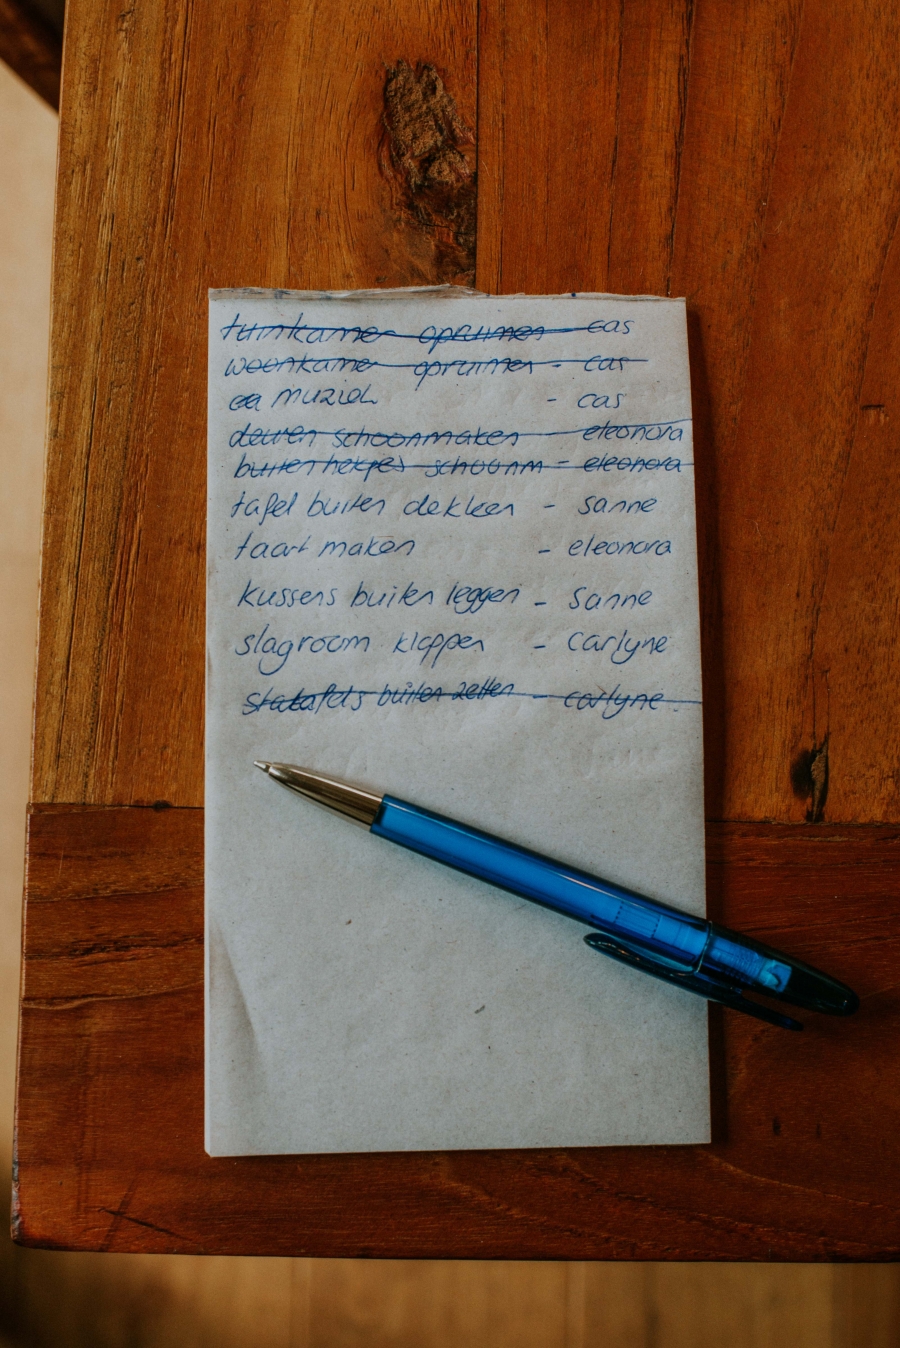 tuinkamer opruimen - cas
woonkamer opruimen - cas
muziek - cas
deuren schoonmaken - eleonora
buitenhekjes schoonm - eleonora
tafel buiten dekken - sanne
taart maken - eleonora
kussens buiten leggen - sanne
slagroom kloppen - carlyne
statafels buiten zetten - carlyne